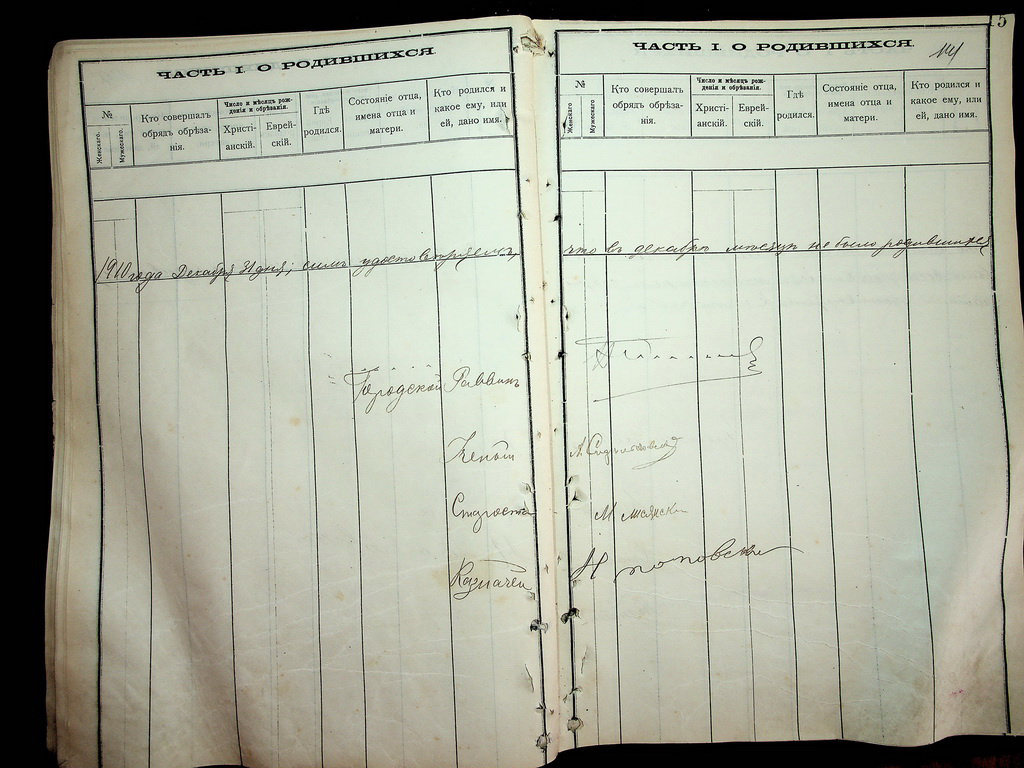 ЧАСТЬ I. О РОДИВШИХСЯ.
№
Женскаго.
Мужескаго.
Кто совершалъ обрядъ обрѣза-
нія.
Число и мѣсяцъ рож-
денія и обрѣзанія.
Христі-
анскій.
Еврей-
скій.
Гдѣ
родился.
Состояніе отца,
имена отца и
матери.
Кто родился и
какое ему, или
ей, дано имя.
ЧАСТЬ I. О РОДИВШИХСЯ.
5
№
Женскаго
Мужескаго
Кто совершалъ
обрядъ обрѣза-
нія.
Число и мѣсяцъ рож-
денія и обрѣзанія.
Христі-
анскій.
Еврей-
скій.
Гдѣ
родился.
Состояніе отца,
имена отца и
матери.
Кто родился и
какое ему, или
ей, дано имя.
1910 года Декабря 31 дня, симъ удостовѣряемъ, что въ декабрѣ мѣсяцѣ не было родившихся
Городской Раввинъ
Староста
Казначей